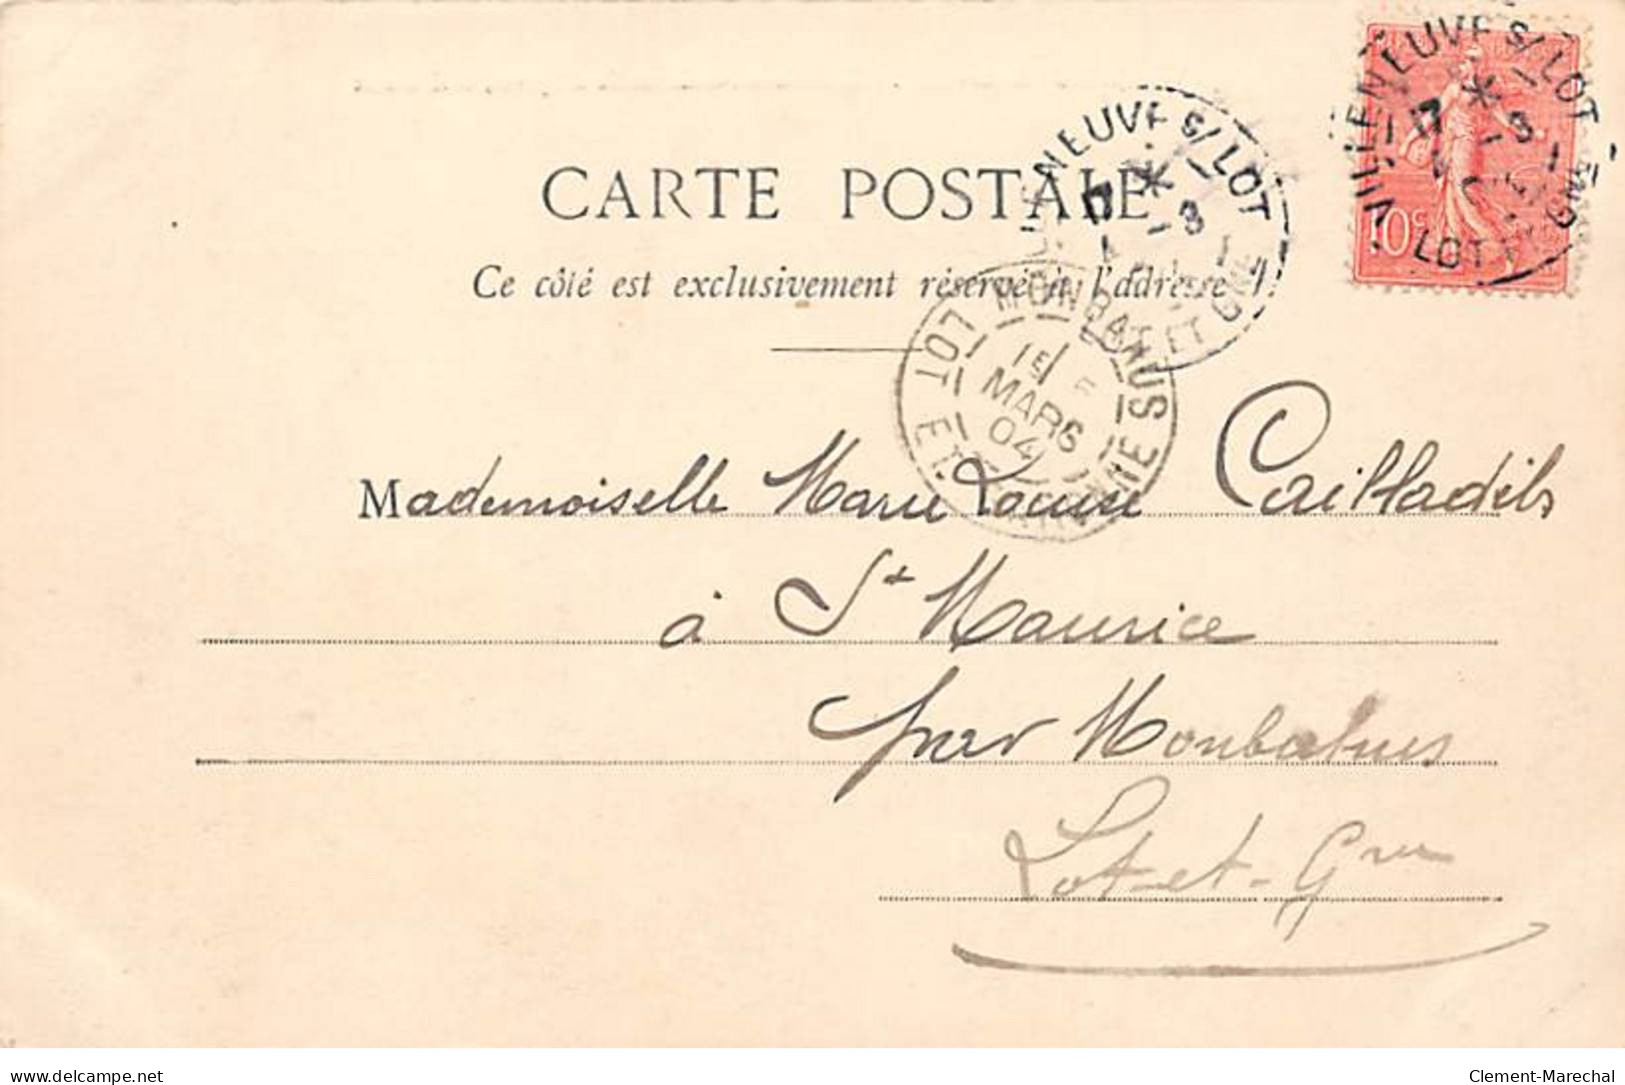 VILLENEUVE S/ LOT
17 * -3
LOT ET GNE
10c
NEUVE S/ LOT
17 * -3
ET GNE
CARTE POSTALE
Ce côté est exclusivement réservé à l'adresse
MONBAHUS
15
MARS
04
LOT ET GARONNE
Mademoiselle Marie Louise Cailladils
à St Maurice
par Monbahus
Lot-et-Gne
www.delcampe.net
Clement-Marechal